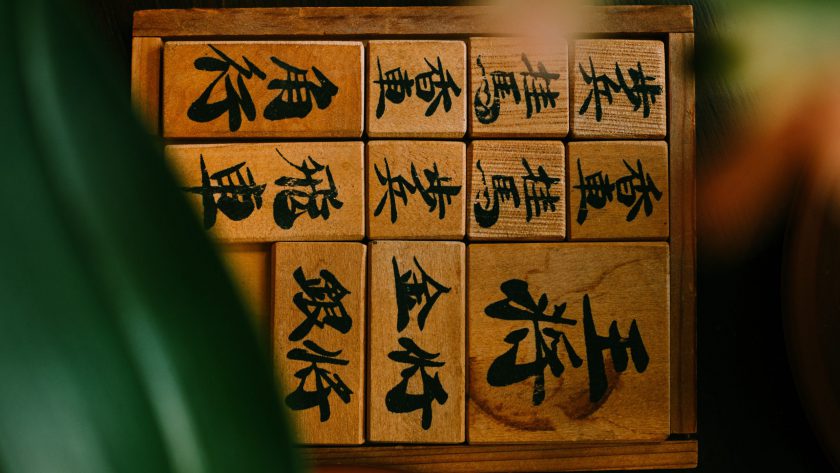 角行
香車
桂馬
歩兵
飛車
歩兵
桂馬
香車
銀将
金将
王将